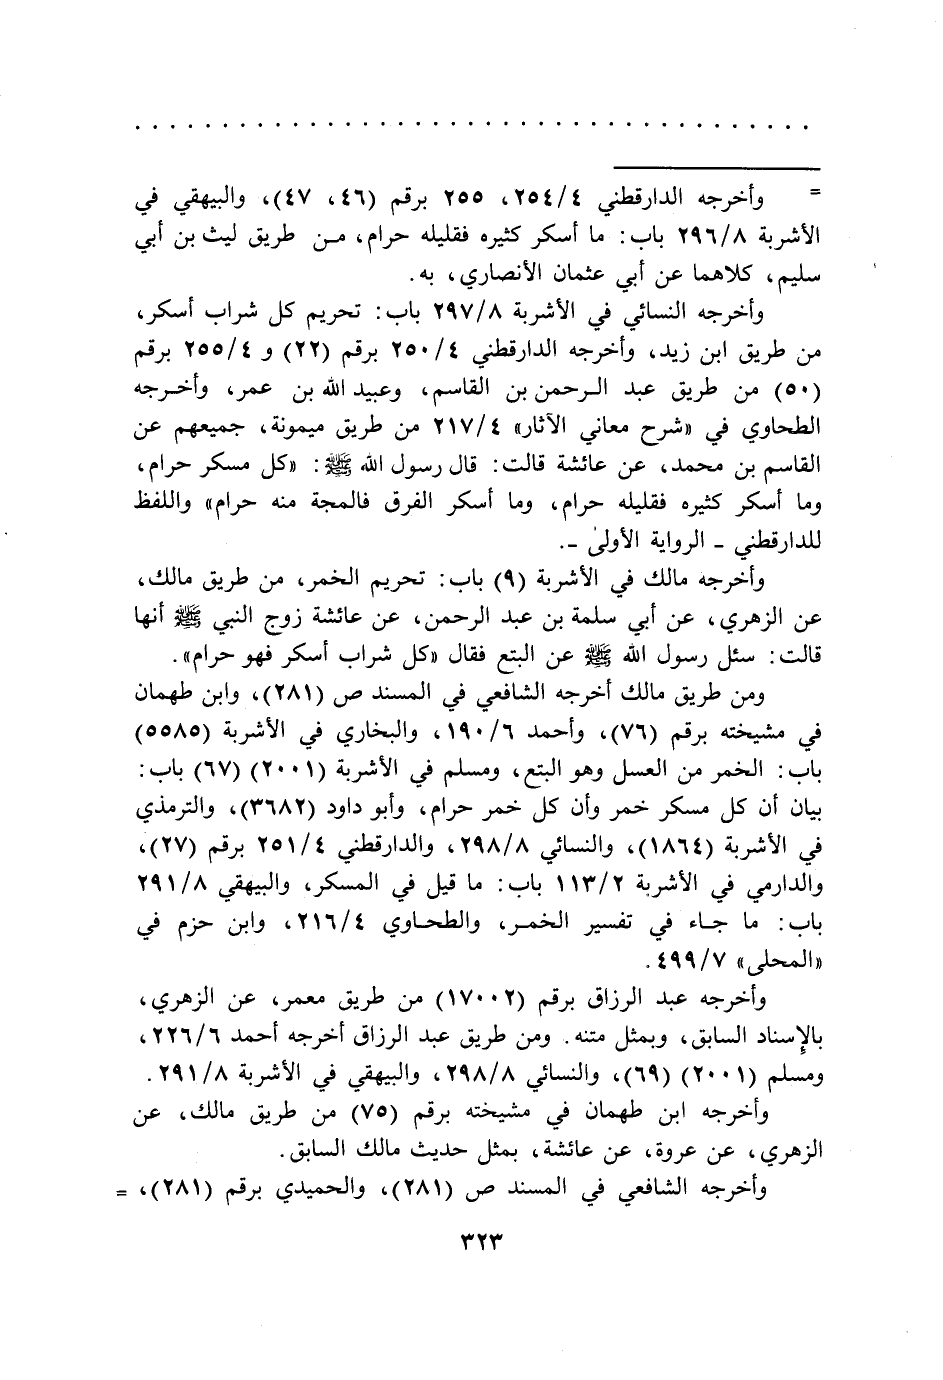 . . . . . . . . . . . . . . . . . . . . . . . . . . . . . . . . . . . . . . .
= وأخرجه الدارقطني ٢٥٤/٤، ٢٥٥ برقم (٤٦، ٤٧)، والبيهقي في
الأشربة ٢٩٦/٨ باب: ما أسكر كثيره فقليله حرام، مـن طريق ليث بن أبي
سليم، كلاهما عن أبي عثمان الأنصاري، به.
وأخرجه النسائي في الأشربة ٢٩٧/٨ باب: تحريم كل شراب أسكر،
من طريق ابن زيد، وأخرجه الدارقطني ٢٥٠/٤ برقم (٢٢) و ٢٥٥/٤ برقم
(٥٠) من طريق عبد الـرحمن بن القاسم، وعبيد الله بن عمر، وأخـرجه
الطحاوي في «شرح معاني الآثار» ٢١٧/٤ من طريق ميمونة، جميعهم عن
القاسم بن محمد، عن عائشة قالت: قال رسول الله ﷺ: «كل مسكر حرام،
وما أسكر كثيره فقليله حرام، وما أسكر الفرق فالمجة منه حرام» واللفظ
للدارقطني - الرواية الأولىٰ -.
وأخرجه مالك في الأشربة (٩) باب: تحريم الخمر، من طريق مالك،
عن الزهري، عن أبي سلمة بن عبد الرحمن، عن عائشة زوج النبي ﷺ أنها
قالت: سئل رسول الله ﷺ عن البتع فقال «كل شراب أسكر فهو حرام».
ومن طريق مالك أخرجه الشافعي في المسند ص (٢٨١)، وابن طهمان
في مشيخته برقم (٧٦)، وأحمد ١٩٠/٦، والبخاري في الأشربة (٥٥٨٥)
باب: الخمر من العسل وهو البتع، ومسلم في الأشربة (٢٠٠١) (٦٧) باب:
بيان أن كل مسكر خمر وأن كل خمر حرام، وأبو داود (٣٦٨٢)، والترمذي
في الأشربة (١٨٦٤)، والنسائي ٢٩٨/٨، والدارقطني ٢٥١/٤ برقم (٢٧)،
والدارمي في الأشربة ١١٣/٢ باب: ما قيل في المسكر، والبيهقي ٢٩١/٨
باب: ما جـاء في تفسير الخمـر، والطحـاوي ٢١٦/٤، وابن حزم في
«المحلى» ٤٩٩/٧.
وأخرجه عبد الرزاق برقم (١٧٠٠٢) من طريق معمر، عن الزهري،
بالإسناد السابق، وبمثل متنه. ومن طريق عبد الرزاق أخرجه أحمد ٢٢٦/٦،
ومسلم (٢٠٠١) (٦٩)، والنسائي ٢٩٨/٨، والبيهقي في الأشربة ٢٩١/٨.
وأخرجه ابن طهمان في مشيخته برقم (٧٥) من طريق مالك، عن
الزهري، عن عروة، عن عائشة، بمثل حديث مالك السابق.
وأخرجه الشافعي في المسند ص (٢٨١)، والحميدي برقم (٢٨١)، =
٣٢٣